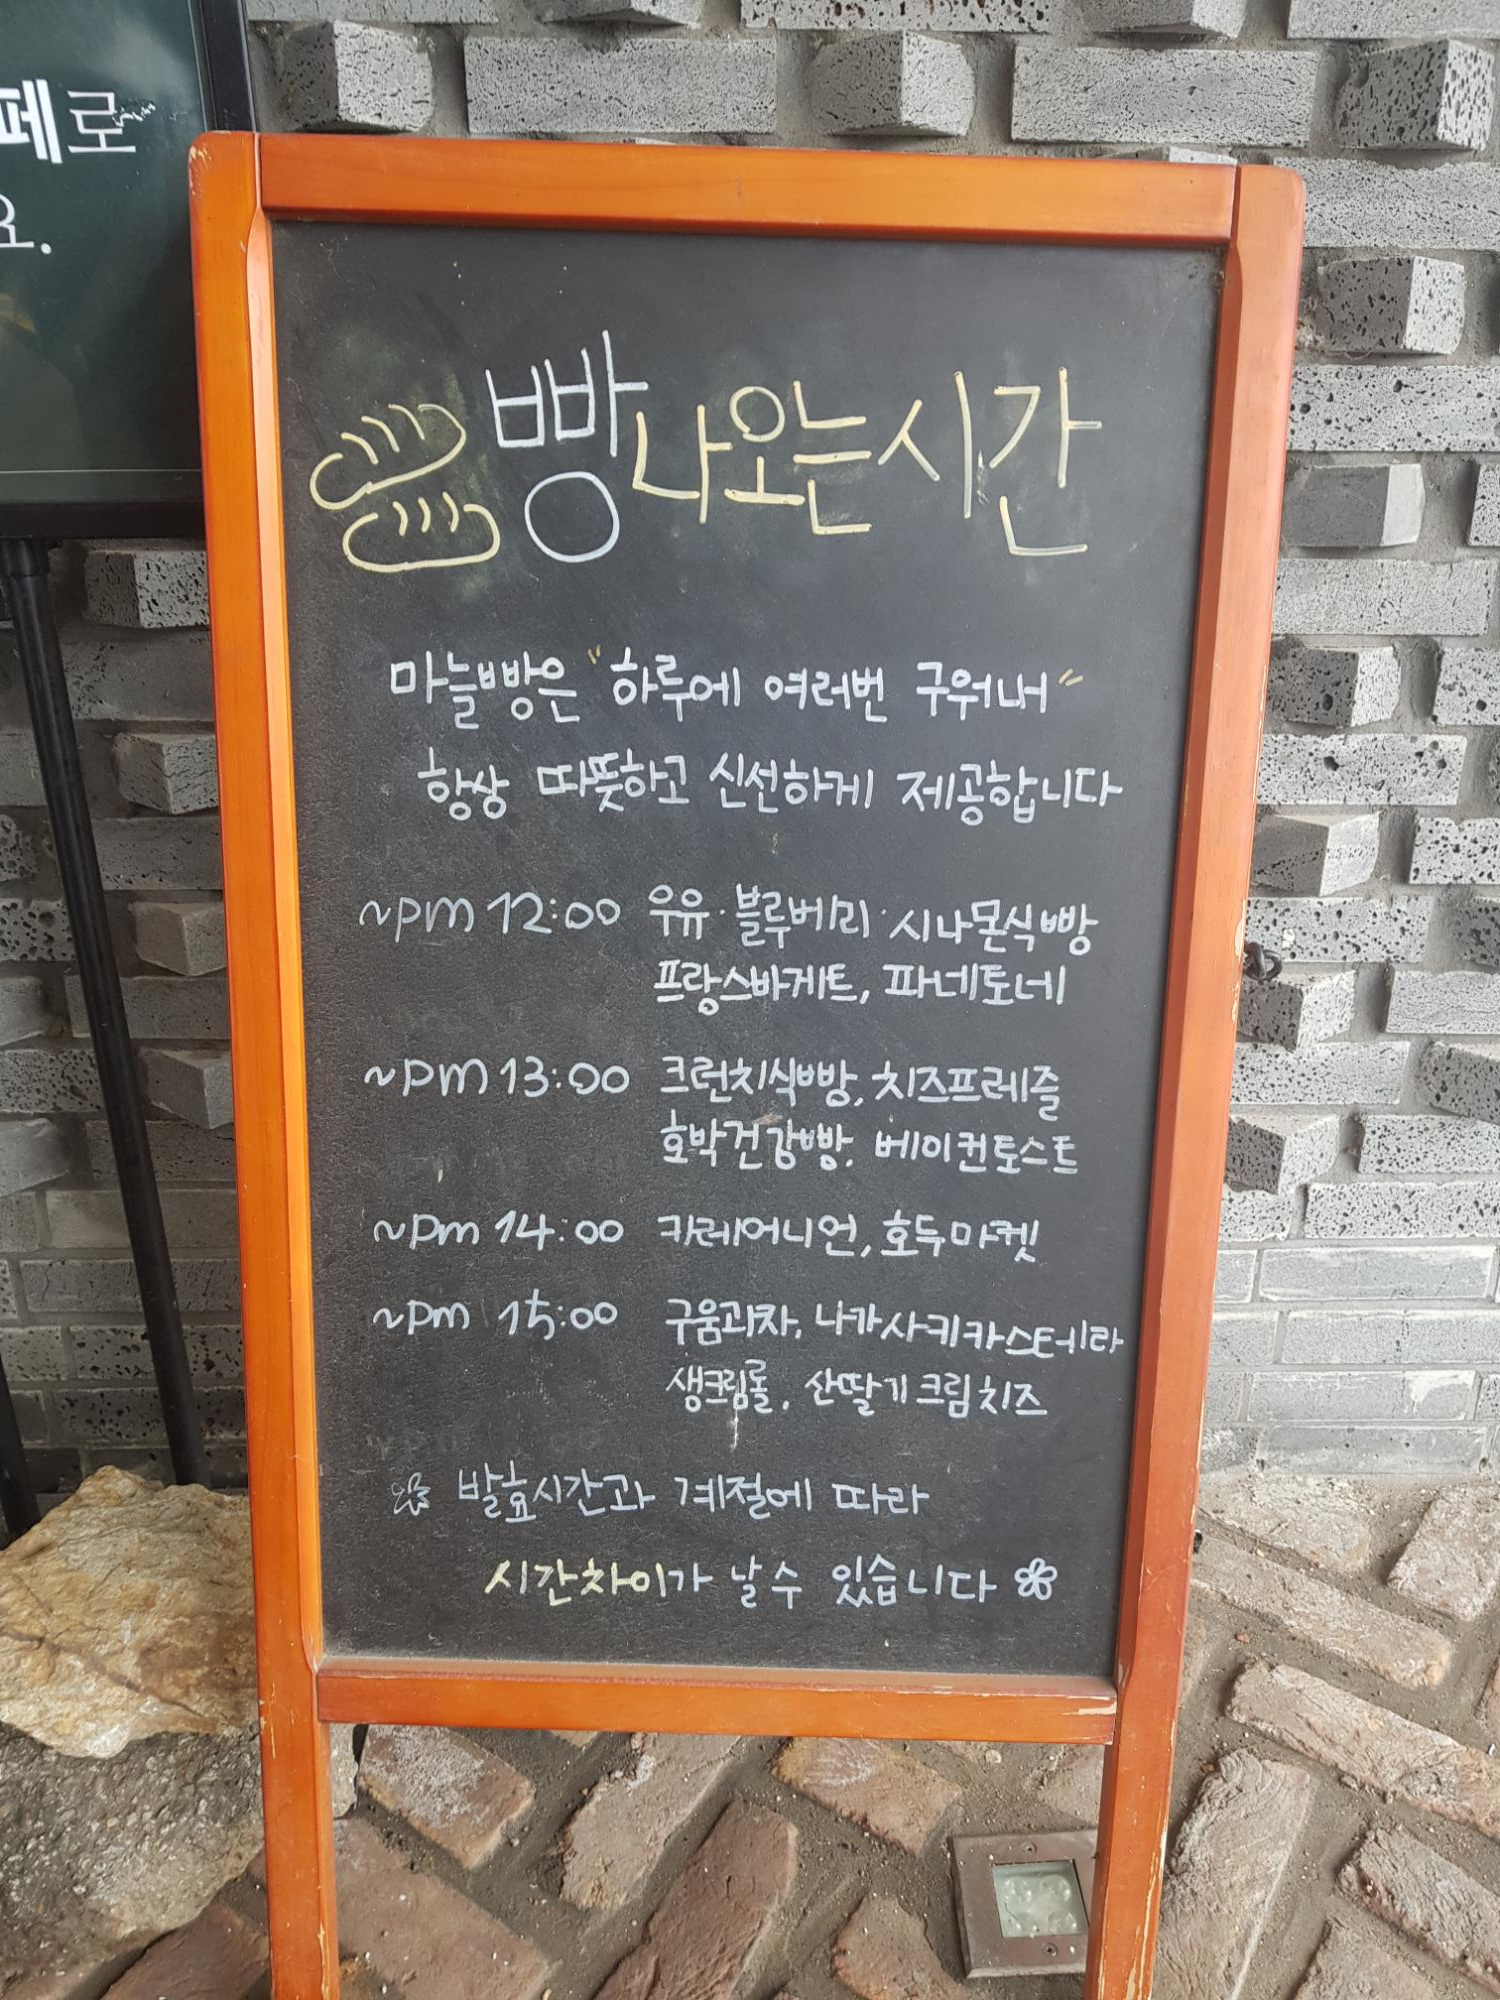 페로
요.
빵나오는시간
마늘빵은 "하루에 여러번 구워내"
항상 따뜻하고 신선하게 제공합니다
~pm 12:00 우유·블루베리·시나몬식빵
프랑스바게트, 파네토네
~pm 13:00 크런치식빵, 치즈프레즐
호박건강빵, 베이컨토스트
~pm 14:00 카레어니언, 호두마켓
~pm 15:00 구움과자, 나가사키카스테라
생크림롤, 산딸기크림치즈
발효시간과 계절에 따라
시간차이가 날수 있습니다